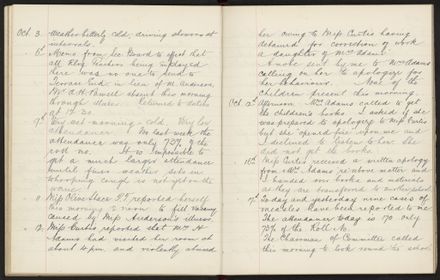 Oct. 3. Weather bitterly cold, driving showers at
intervals.
6th Memo. from Sec. Board to effect that
all Relvg Teachers being employed
there was no one to send to
in lieu of M. Anderson.
Mr A. H. absent this morning
through illness. Returned to duties
at 1.30.
7th Very wet morning - cold. Very low
attendance. In last week the
attendance was only 73% of the
roll no. It is impossible to
get a much larger attendance
until finer weather sets in
Whooping cough is not yet on the
wane.
11 Miss Olive P.T. reported herself
this morning to fill vacancy
caused by Miss Anderson's illness.
12. Miss Curtis reported that Mrs H
Adams had visited her room at
about 12 p.m. and violently abused
her owing to Miss Curtis having
detained for correction of work
a daughter of Mrs Adams.
A note sent by me to Mrs Adams
calling on her to apologise for
her behaviour. None of the
children present this morning.
Oct. 12th Afternoon. Mrs Adams called to get
the children's books. I asked if she
was prepared to apologise to Miss Curtis
but she "opened fire" upon me and
I declined to listen to her. She
did not get the books.
16th Miss Curtis received a written apology
from Mrs Adams re above matter and
I handed over books and
as they are transferred to
17th Today and yesterday some cases of
measles have been reported to me
The attendance today is 70 only
73% of the Roll No.
The Chairman of Committee called
this morning to look round the school